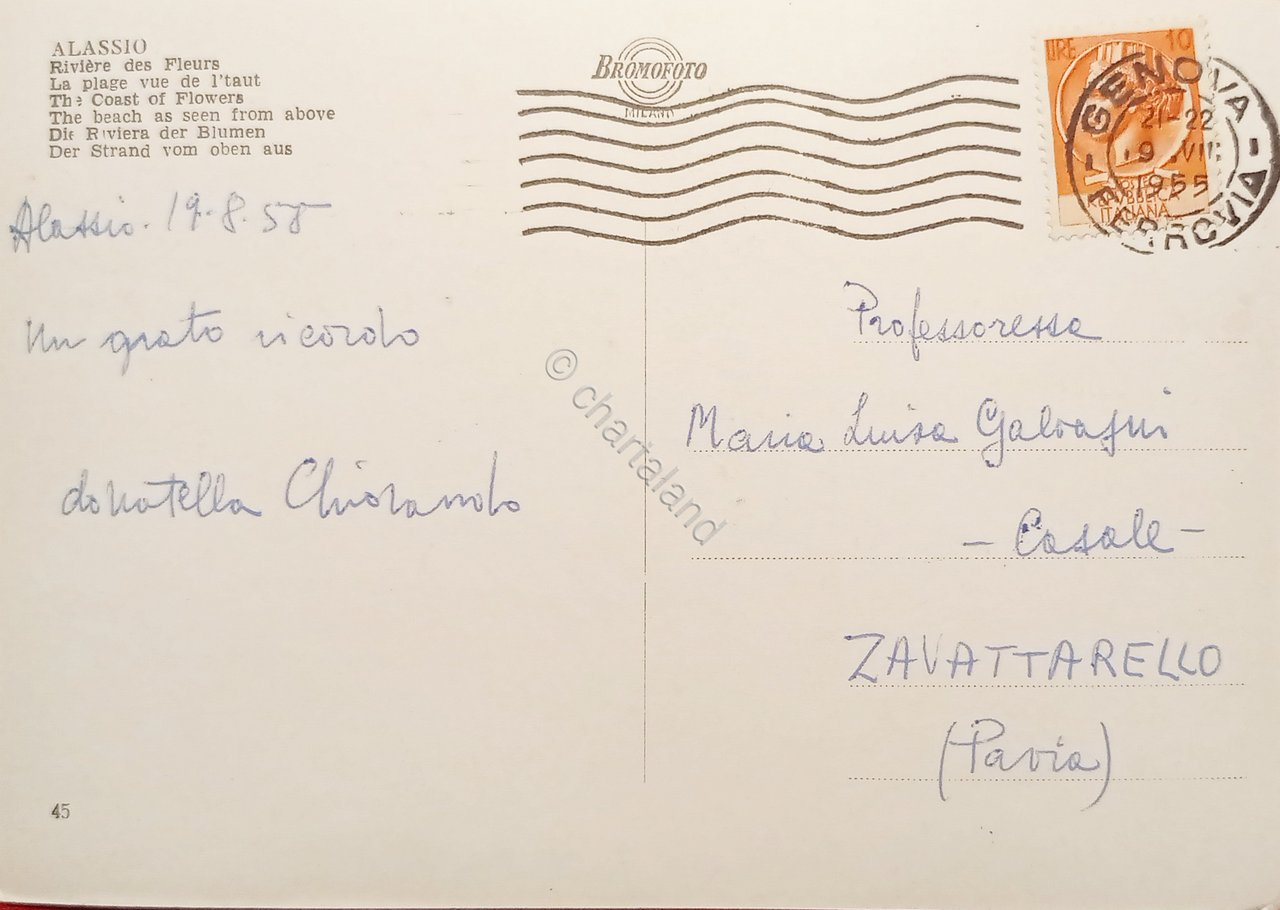 ALASSIO
Rivière des Fleurs
La plage vue de l'taut
The Coast of Flowers
The beach as seen from above
Die Riviera der Blumen
Der Strand vom oben aus
BROMOFOTO
MILANO
LIRE 10
POSTE
REPUBBLICA
ITALIANA
GENOVA
21-22
1955
FERROVIA
Alassio. 19.8.55
Un grato ricordo
donatella Chiorando
Professoressa
Maria Luisa Galvagni
- Casale -
ZAVATTARELLO
(Pavia)
45
© chartaland